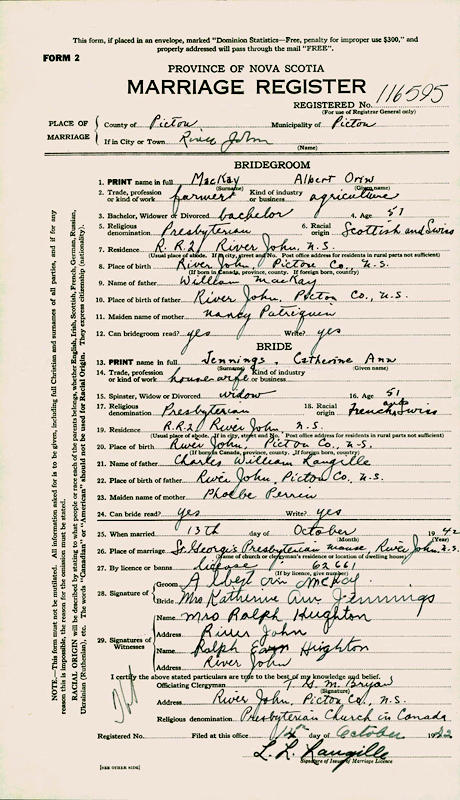 This form, if placed in an envelope, marked "Dominion Statistics—Free, penalty for improper use $300," and
properly addressed will pass through the mail "FREE".
FORM 2
PROVINCE OF NOVA SCOTIA
MARRIAGE REGISTER
REGISTERED No. 116595
(For use of Registrar General only)
PLACE OF MARRIAGE
County of Pictou Municipality of Pictou
If in City or Town River John
(Name)
BRIDEGROOM
1. PRINT name in full MacKay Albert Orin
(Surname) (Given name)
2. Trade, profession or kind of work farmer Kind of industry or business agriculture
3. Bachelor, Widower or Divorced bachelor 4. Age 51
5. Religious denomination Presbyterian 6. Racial origin Scottish and Swiss
7. Residence R.R.2 River John, N.S.
(Usual place of abode. If in city, street and No. Post office address for residents in rural parts not sufficient)
8. Place of birth River John, Pictou Co., N.S.
(If born in Canada, province, county. If foreign born, country)
9. Name of father William MacKay
10. Place of birth of father River John, Pictou Co., N.S.
11. Maiden name of mother Nancy Patriquin
12. Can bridegroom read? yes Write? yes
BRIDE
13. PRINT name in full Jennings, Catherine Ann
(Surname) (Given name)
14. Trade, profession or kind of work housewife Kind of industry or business
15. Spinster, Widow or Divorced widow 16. Age 51
17. Religious denomination Presbyterian 18. Racial origin French and Swiss
19. Residence R.R.2 River John, N.S.
(Usual place of abode. If in city, street and No. Post office address for residents in rural parts not sufficient)
20. Place of birth River John, Pictou Co., N.S.
(If born in Canada, province, county. If foreign born, country)
21. Name of father Charles William Langille
22. Place of birth of father River John, Pictou Co., N.S.
23. Maiden name of mother Phoebe Perrin
24. Can bride read? yes Write? yes
25. When married 13th day of October 1942
(Month) (Year)
26. Place of marriage St. George's Presbyterian manse, River John, N.S.
(Name of church or clergyman's residence or location of dwelling house)
27. By licence or banns license 62661
(If by licence, give number)
28. Signature of
Groom Albert Orin McKay
Bride Mrs Katherine Ann Jennings
29. Signatures of Witnesses
Name Mrs Ralph Hughton
Address River John
Name Ralph Hughton
Address River John
I certify the above stated particulars are true to the best of my knowledge and belief.
Officiating Clergyman M. Bryan
(Signature)
Address River John, Pictou Co., N.S.
Religious denomination Presbyterian Church in Canada
Registered No. Filed at this office 14th day of October 1942
L. L. Langille
Signature of Issuer of Marriage Licence
[SEE OTHER SIDE]
NOTE.—This form must not be mutilated. All information asked for is to be given, including full Christian and surnames of all parties, and if for any
reason this is impossible, the reason for the omission must be stated.
RACIAL ORIGIN will be described by stating to what people or race each of the parents belongs, whether English, Irish, Scottish, French, German, Russian,
Ukrainian (Ruthenian), etc. The words "Canadian" or "American" should not be used for Racial Origin. They express citizenship (nationality).